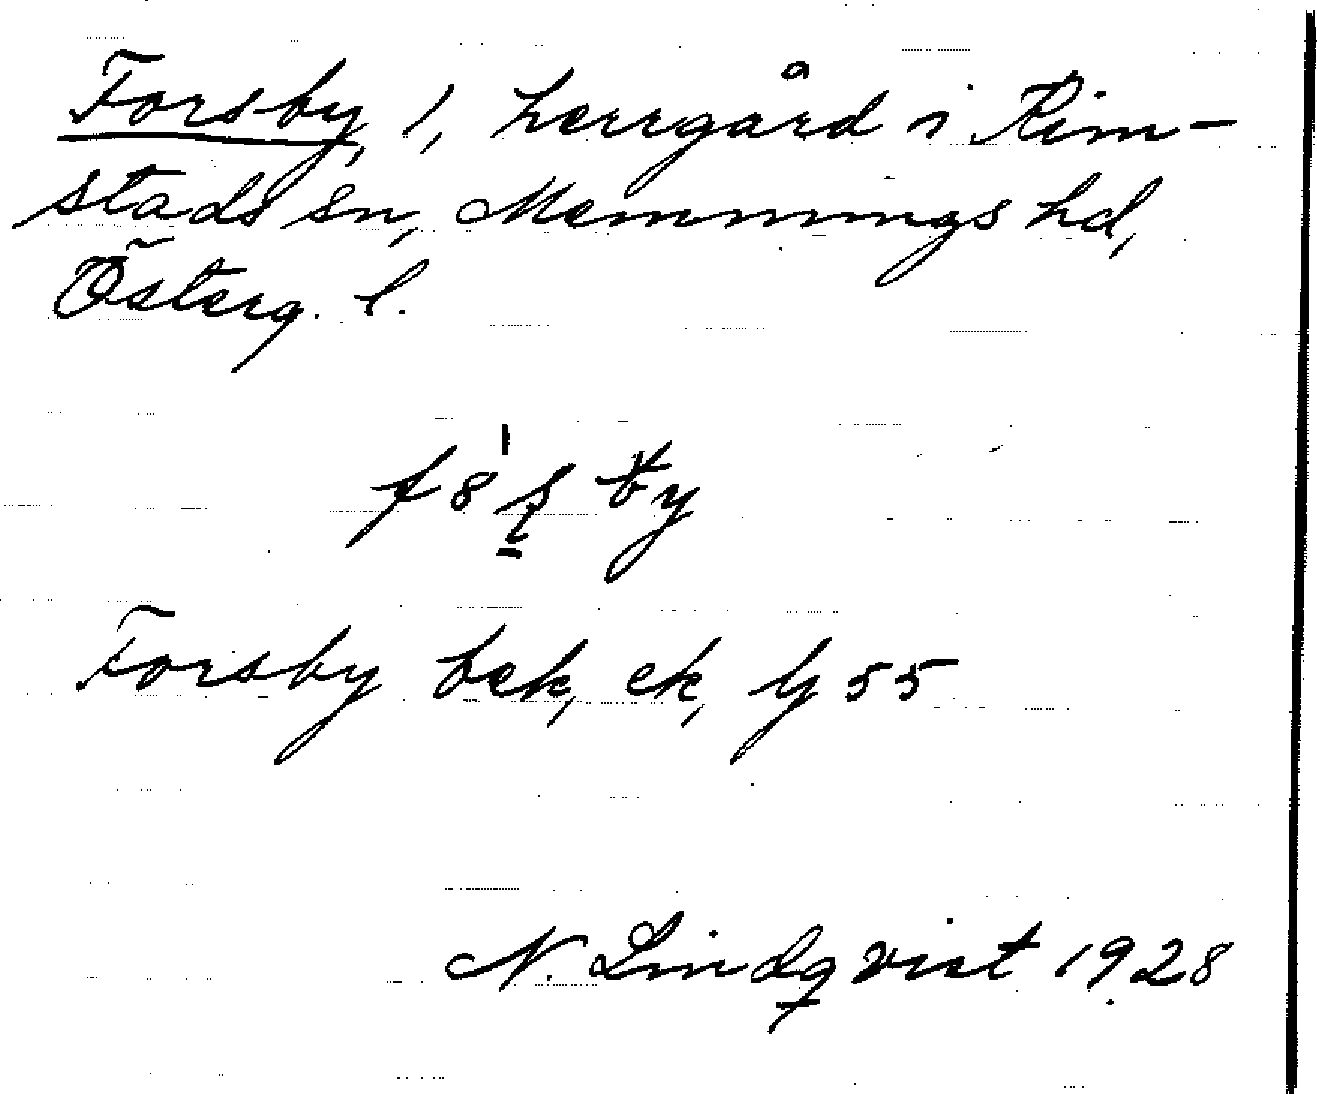 Forsby, 1, herrgård i Kim-
stads sn, Memmings hd,
Österg. l.
Forsby bek, ek, Ij 55
N. Lindqvist 1928